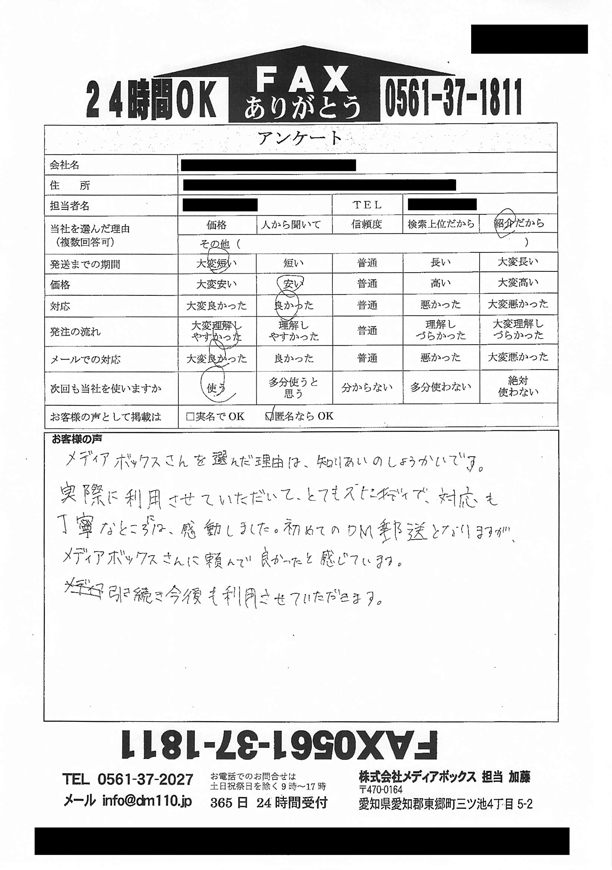 24時間OK
FAX
ありがとう
0561-37-1811
アンケート
会社名
住 所
担当者名 TEL
当社を選んだ理由
(複数回答可)
価格 人から聞いて 信頼度 検索上位だから 紹介だから
その他( )
発送までの期間 大変短い 短い 普通 長い 大変長い
価格 大変安い 安い 普通 高い 大変高い
対応 大変良かった 良かった 普通 悪かった 大変悪かった
発注の流れ 大変理解しやすかった 理解しやすかった 普通 理解しづらかった 大変理解しづらかった
メールでの対応 大変良かった 良かった 普通 悪かった 大変悪かった
次回も当社を使いますか 使う 多分使うと思う 分からない 多分使わない 絶対使わない
お客様の声として掲載は □実名でOK ☑匿名ならOK
お客様の声
メディアボックスさんを選んだ理由は、知りあいのしょうかいです。
実際に利用させていただいて、とてもスピーディで、対応も
丁寧なところは、感動しました。初めてのDM郵送となりますが、
メディアボックスさんに頼んで良かったと感じています。
引き続き今後も利用させていただきます。
FAX0561-37-1811
TEL 0561-37-2027
メール info@dm110.jp
お電話でのお問合せは
土日祝祭日を除く9時～17時
365日 24時間受付
株式会社メディアボックス 担当 加藤
〒470-0164
愛知県愛知郡東郷町三ツ池4丁目5-2